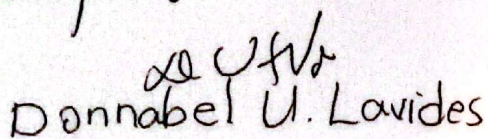 Donnabel U. Lavides